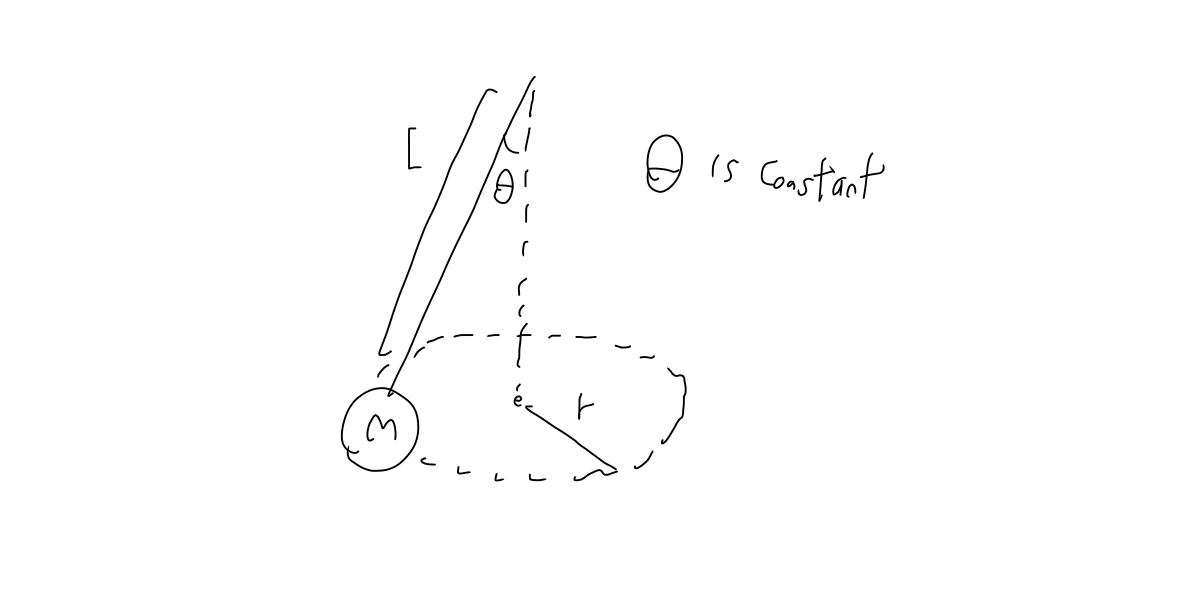 L
θ
θ is constant
r
M